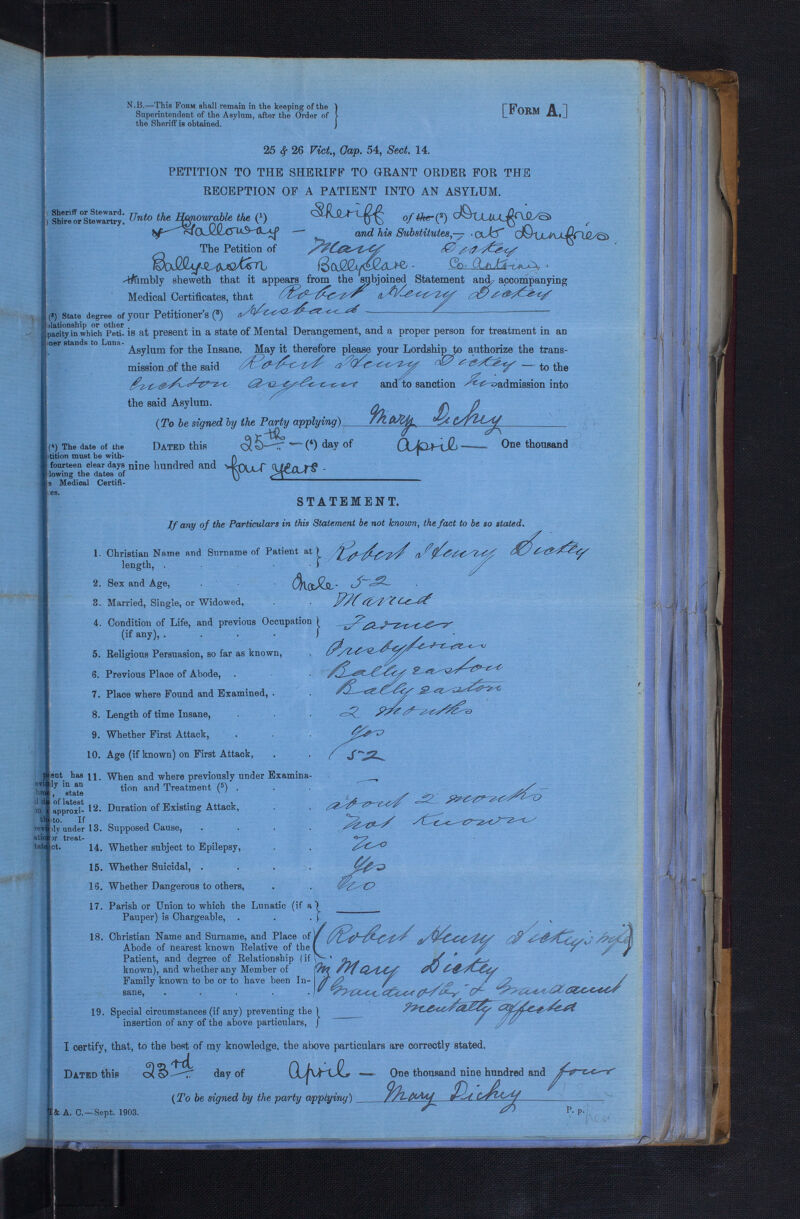 N.B.—This Form shall remain in the keeping of the
Superintendent of the Asylum, after the Order of
the Sheriff is obtained.
[Form A.]
25 & 26 Vict., Cap. 54, Sect. 14.
PETITION TO THE SHERIFF TO GRANT ORDER FOR THE
RECEPTION OF A PATIENT INTO AN ASYLUM.
Sheriff or Steward.
Shire or Stewartry.
Unto the Honourable the (¹) Sheriff of the (²) Dumfries
& Galloway — and his Substitutes,— at Dumfries.
The Petition of Mary Dickey
Ballyeaston Ballyclare. Co. Antrim.
Humbly sheweth that it appears from the subjoined Statement and accompanying
Medical Certificates, that Robert Henry Dickey
(³) State degree of
lationship or other
pacity in which Peti-
ner stands to Luna-
your Petitioner's (³) Husband
is at present in a state of Mental Derangement, and a proper person for treatment in an
Asylum for the Insane. May it therefore please your Lordship to authorize the trans-
mission of the said Robert Henry Dickey — to the
Crichton Asylum and to sanction his admission into
the said Asylum.
(To be signed by the Party applying) Mary Dickey
(⁴) The date of the
tition must be with-
fourteen clear days
lowing the dates of
s Medical Certifi-
es.
Dated this 25th — (⁴) day of April — One thousand
nine hundred and four years.
STATEMENT.
If any of the Particulars in this Statement be not known, the fact to be so stated.
1. Christian Name and Surname of Patient at
length, . Robert Henry Dickey
2. Sex and Age, Male. 52
3. Married, Single, or Widowed, Married
4. Condition of Life, and previous Occupation
(if any), . Farmer
5. Religious Persuasion, so far as known, Presbyterian
6. Previous Place of Abode, . Ballyeaston
7. Place where Found and Examined, . Ballyeaston
8. Length of time Insane, 2 months
9. Whether First Attack, Yes
10. Age (if known) on First Attack, 52
ent has
ly in an
, state
of latest
approxi-
to. If
ly under
or treat-
ct.
11. When and where previously under Examina-
tion and Treatment (⁵) . —
12. Duration of Existing Attack, about 2 months
13. Supposed Cause, not Known
14. Whether subject to Epilepsy, No
15. Whether Suicidal, . Yes
16. Whether Dangerous to others, No
17. Parish or Union to which the Lunatic (if a
Pauper) is Chargeable, . —
18. Christian Name and Surname, and Place of
Abode of nearest known Relative of the
Patient, and degree of Relationship (if
known), and whether any Member of
Family known to be or to have been In-
sane,
(Robert Henry Dickey's wife)
Mary Dickey
Grandmother & Grandaunt
mentally affected
19. Special circumstances (if any) preventing the
insertion of any of the above particulars, —
I certify, that, to the best of my knowledge, the above particulars are correctly stated.
Dated this 23rd day of April — One thousand nine hundred and four
(To be signed by the party applying) Mary Dickey
& A. C.—Sept. 1903.
P. p.